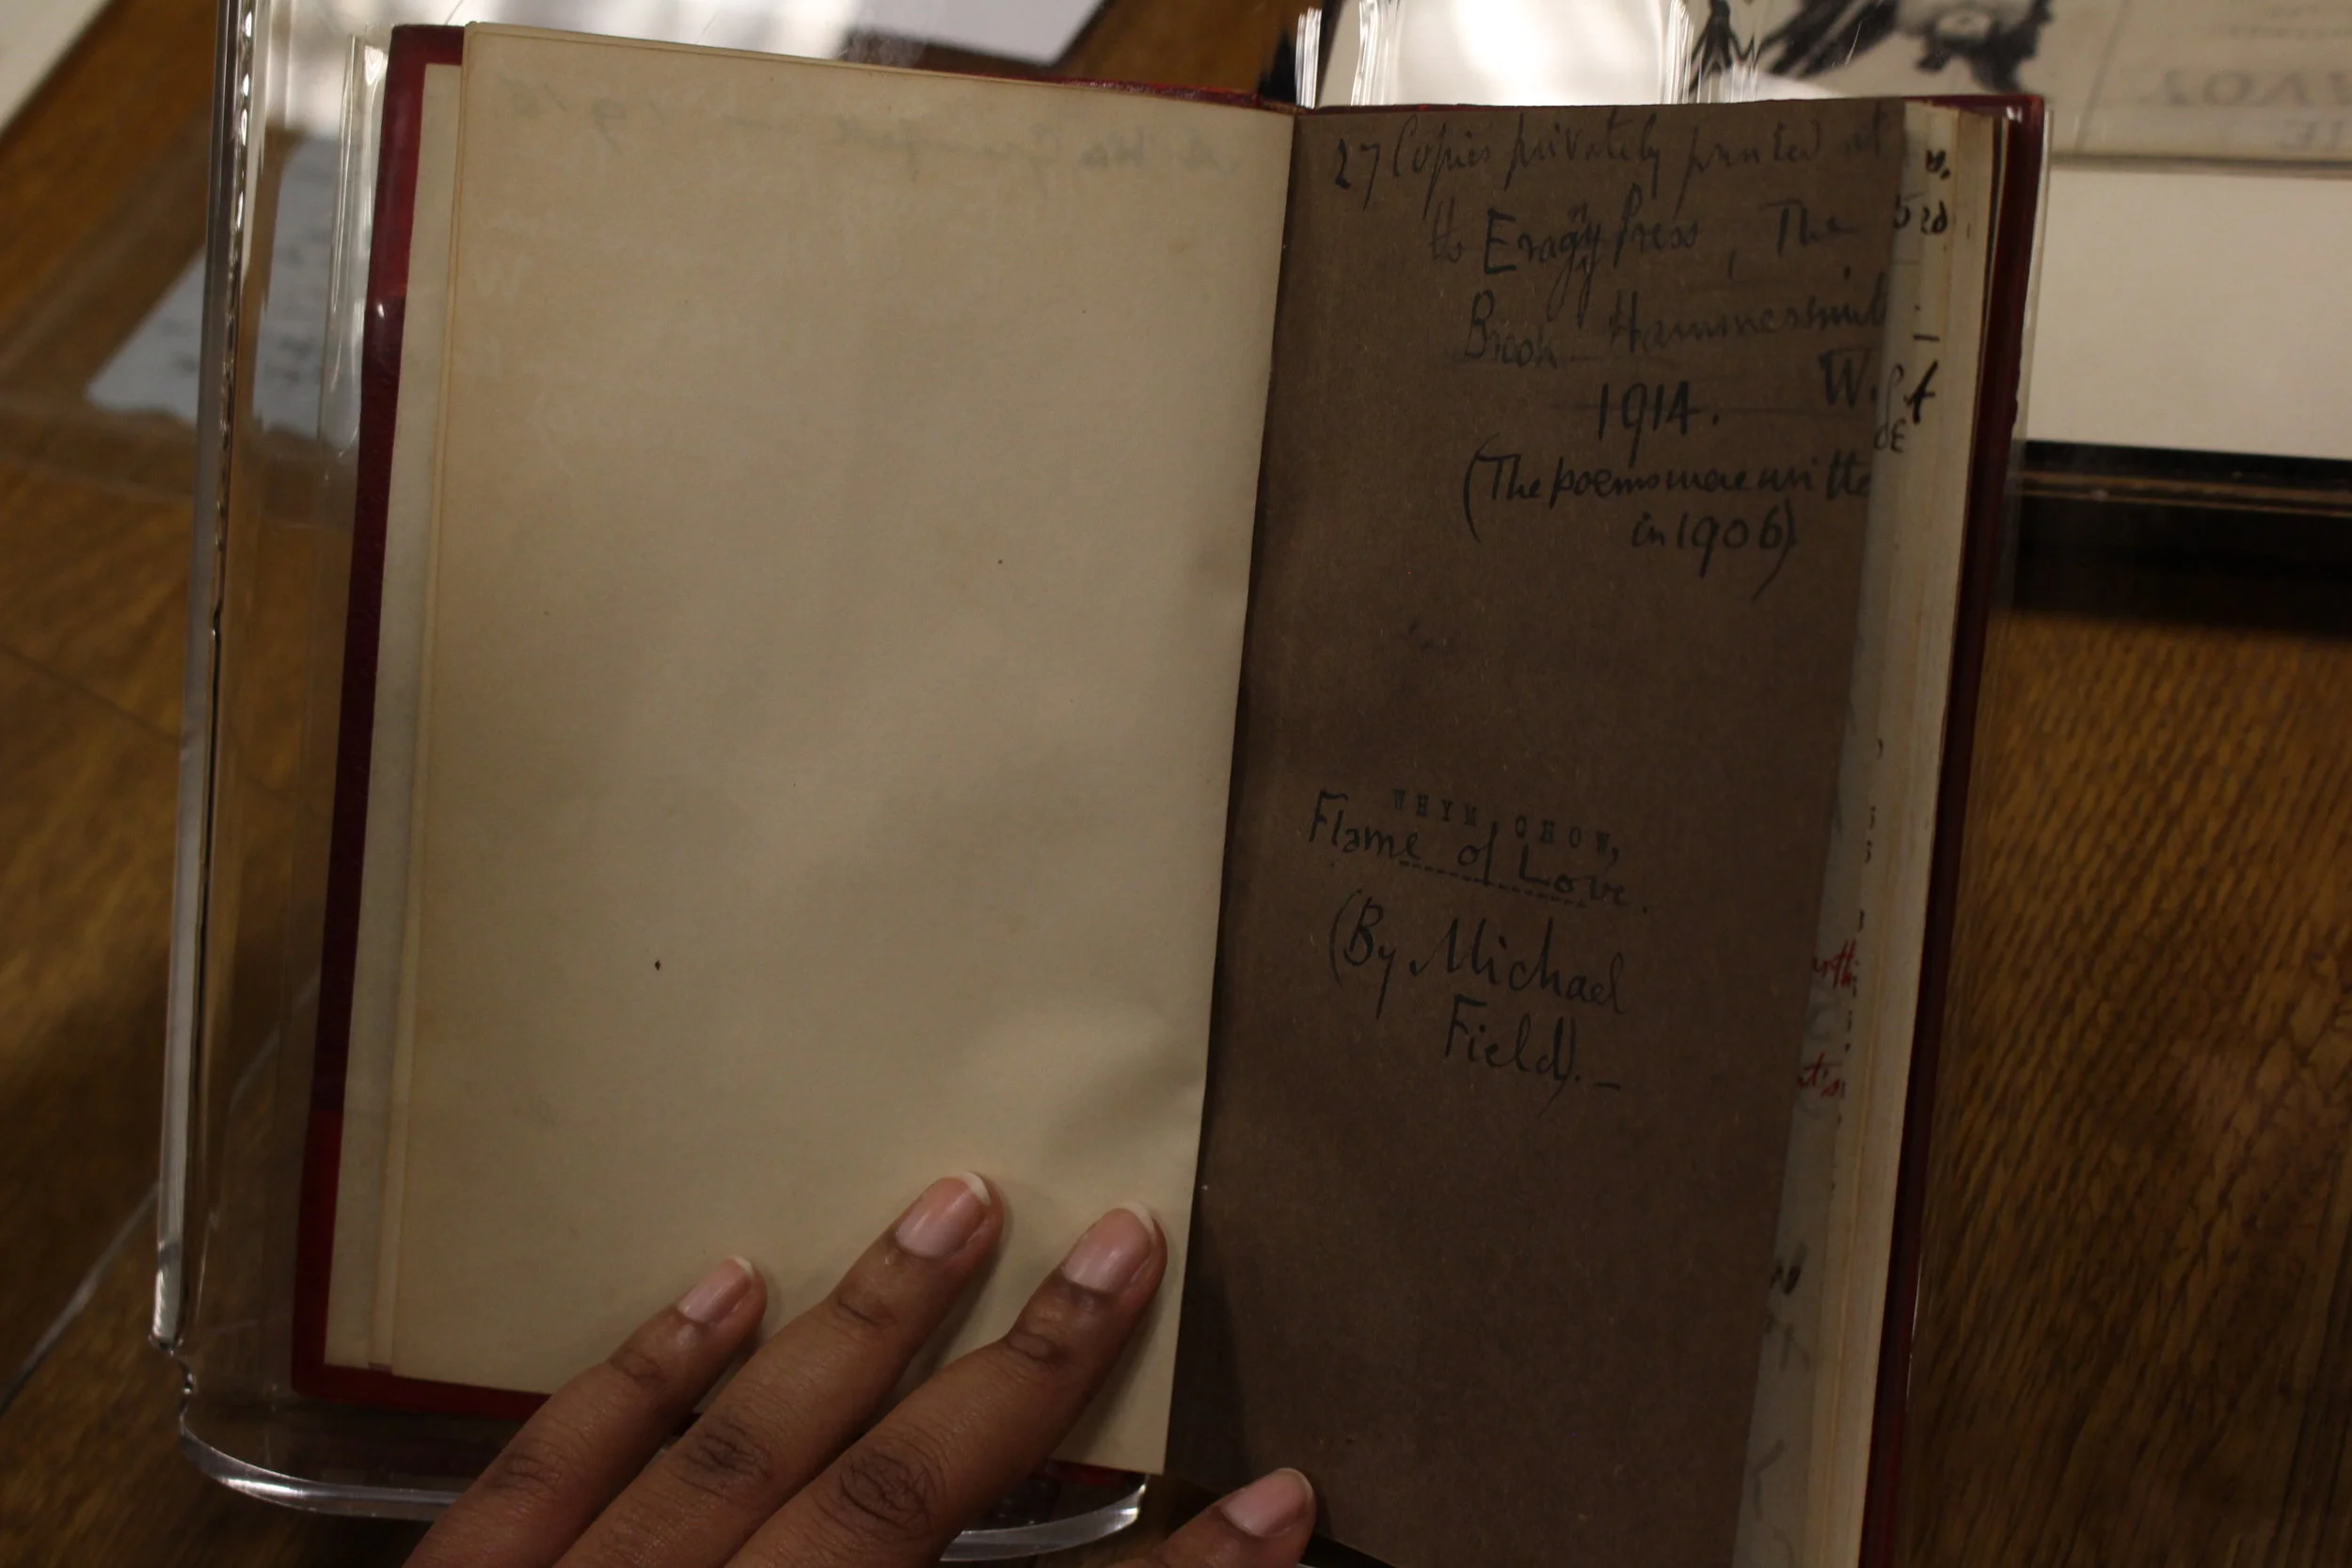 27 Copies privately printed at
the Eragny Press, The
Brook Hammersmith
W.
1914.
(The poems were written
in 1906)
WHYM CHOW,
Flame of Love.
(By Michael
Field). —